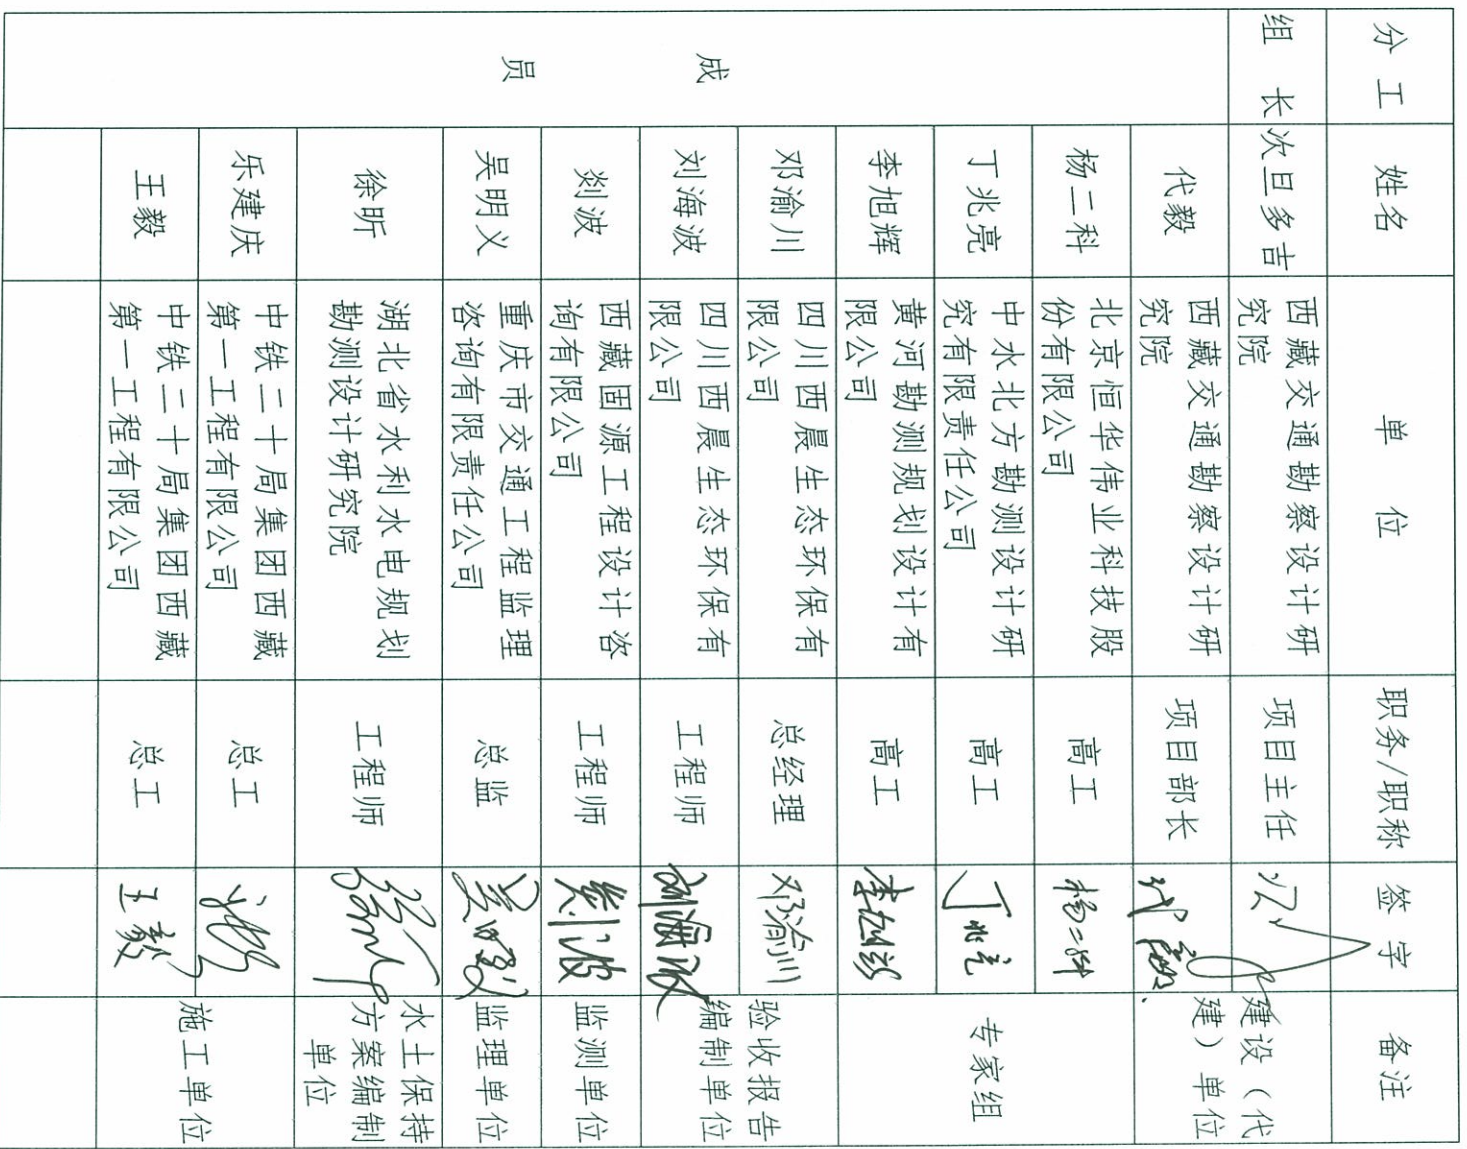 分工 姓名 单位 职务/职称 签字 备注
组长 次旦多吉 西藏交通勘察设计研
究院 项目主任 建设（代
建）单位
成员
代毅 西藏交通勘察设计研
究院 项目部长 代毅
杨二科 北京恒华伟业科技股
份有限公司 高工 杨二科 专家组
丁兆亮 中水北方勘测设计研
究有限责任公司 高工 丁兆亮
李旭辉 黄河勘测规划设计有
限公司 高工 李旭辉
邓渝川 四川西晨生态环保有
限公司 总经理 邓渝川 验收报告
编制单位
刘海波 四川西晨生态环保有
限公司 工程师 刘海波
剡波 西藏固源工程设计咨
询有限公司 工程师 剡波 监测单位
吴明义 重庆市交通工程监理
咨询有限责任公司 总监 吴明义 监理单位
徐昕 湖北省水利水电规划
勘测设计研究院 工程师 水土保持
方案编制
单位
乐建庆 中铁二十局集团西藏
第一工程有限公司 总工 施工单位
王毅 中铁二十局集团西藏
第一工程有限公司 总工 王毅